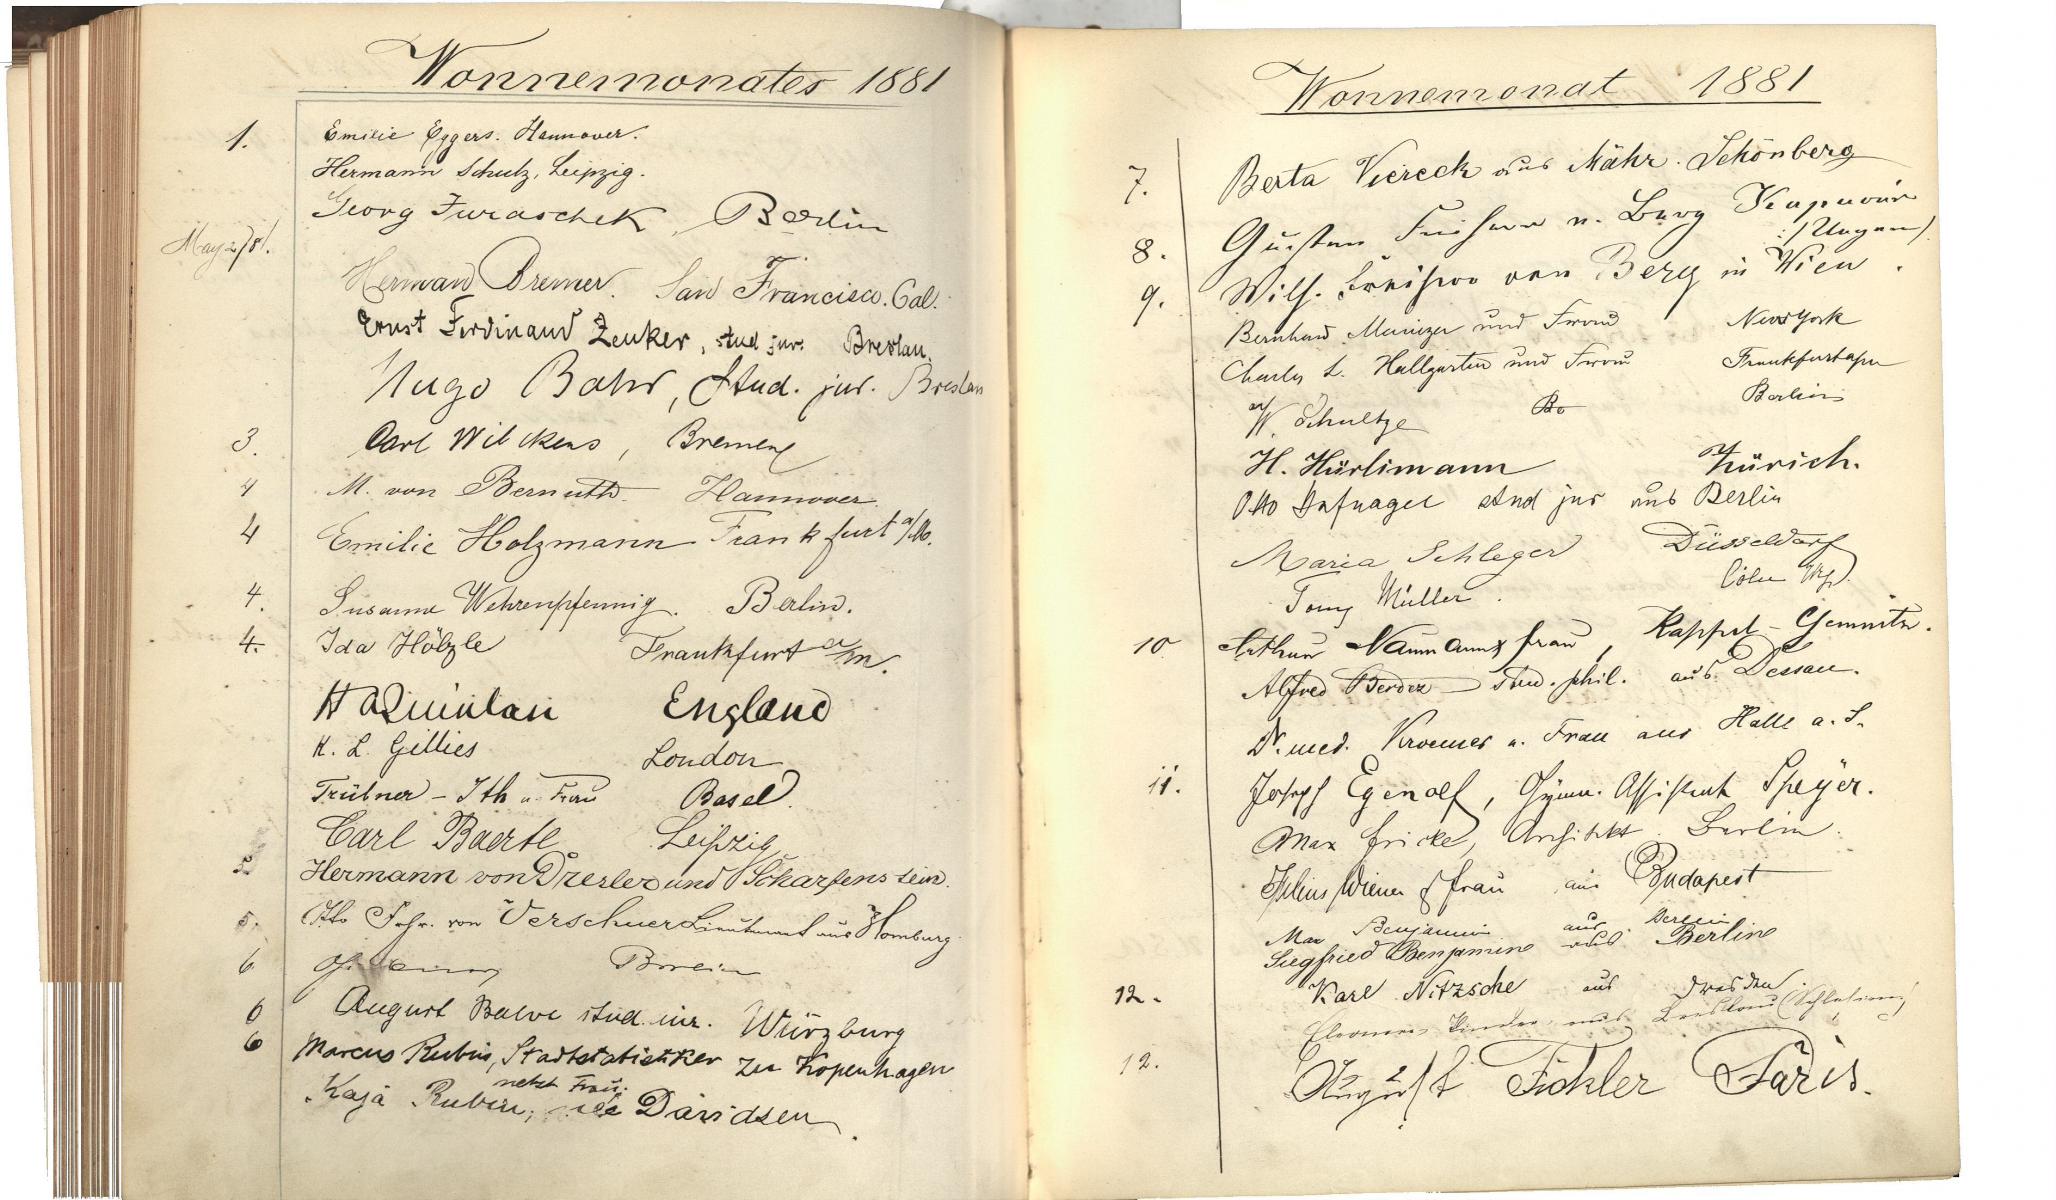 Wonnemonates 1881
1. Emilie Eggers. Hannover.
Hermann Schulz, Leipzig.
Georg Juraschek, Berlin
May 2/81.
Hermann Bremer. San Francisco. Cal.
Ernst Ferdinand Zenker, stud jur. Breslau.
Hugo Bahr, Stud. jur. Breslau
3. Carl Wilckens, Bremen
4 M. von Bernuth Hannover.
4 Emilie Holzmann Frankfurt a/M.
4. Susanne Wehrenpfennig. Berlin.
4. Ida Hölzle Frankfurt a/m.
Quinlan England
K. L. Gillies London
Trübner - Ith u. Frau Basel.
Carl Baerte Leipzig
5 Hermann von Dresler und Scharfenstein.
5. Otto Frhr. von Verschuer Lieutenant aus Homburg.
6 Berlin
6 August Balve stud. jur. Würzburg
6 Marcus Rubin, Stadtstatistiker zu Kopenhagen
nebst Frau.
Kaja Rubin, née Davidsen.
Wonnemonat 1881
7. Berta Viereck aus Mähr. Schönberg
8. Gustav Freiherr v. Berg Kapuvár
(Ungarn).
9. Wilh. Freiherr von Berg in Wien.
Bernhard Mainzer und Frau New York
Charles L. Hallgarten und Frau Frankfurt a/m
W. Schultze Be Berlin
H. Hürlimann Zürich.
Otto Hufnagel stud jur aus Berlin
Maria Schleger Düsseldorf
Tony Müller. Cöln
10 Arthur Naumann & frau, Kappel - Chemnitz.
Alfred Berdez stud. phil. aus Dessau.
Dr. med. Kroemer u. Frau aus Halle a. S.
11. Joseph Egenolf, Gymn. Assistent Speyer.
Max Fricke, Architekt. Berlin.
Julius Wiener & frau aus Budapest
Max Benjamin aus Berlin
Siegfried Benjamin aus Berlin
12. Karl Nitzsche aus Dresden.
Eleonore aus Breslau (Schlesien)
12. August Fickler Paris.